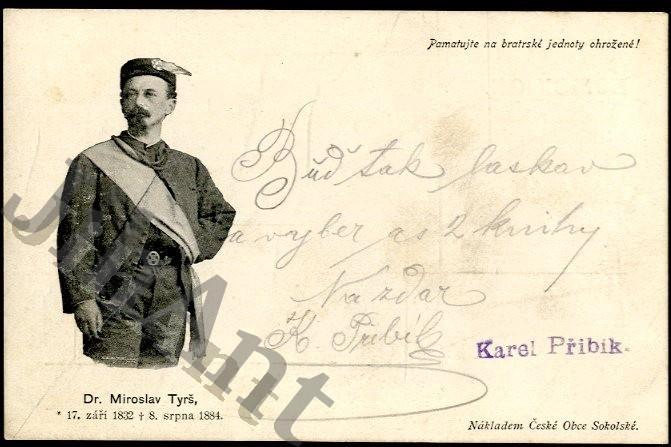 Pamatujte na bratrské jednoty ohrožené!
Buď tak laskav
a vyber as 2 knihy
Na zdar
K. Přibík
Karel Přibik.
Dr. Miroslav Tyrš,
* 17. září 1832 † 8. srpna 1884.
Nákladem České Obce Sokolské.